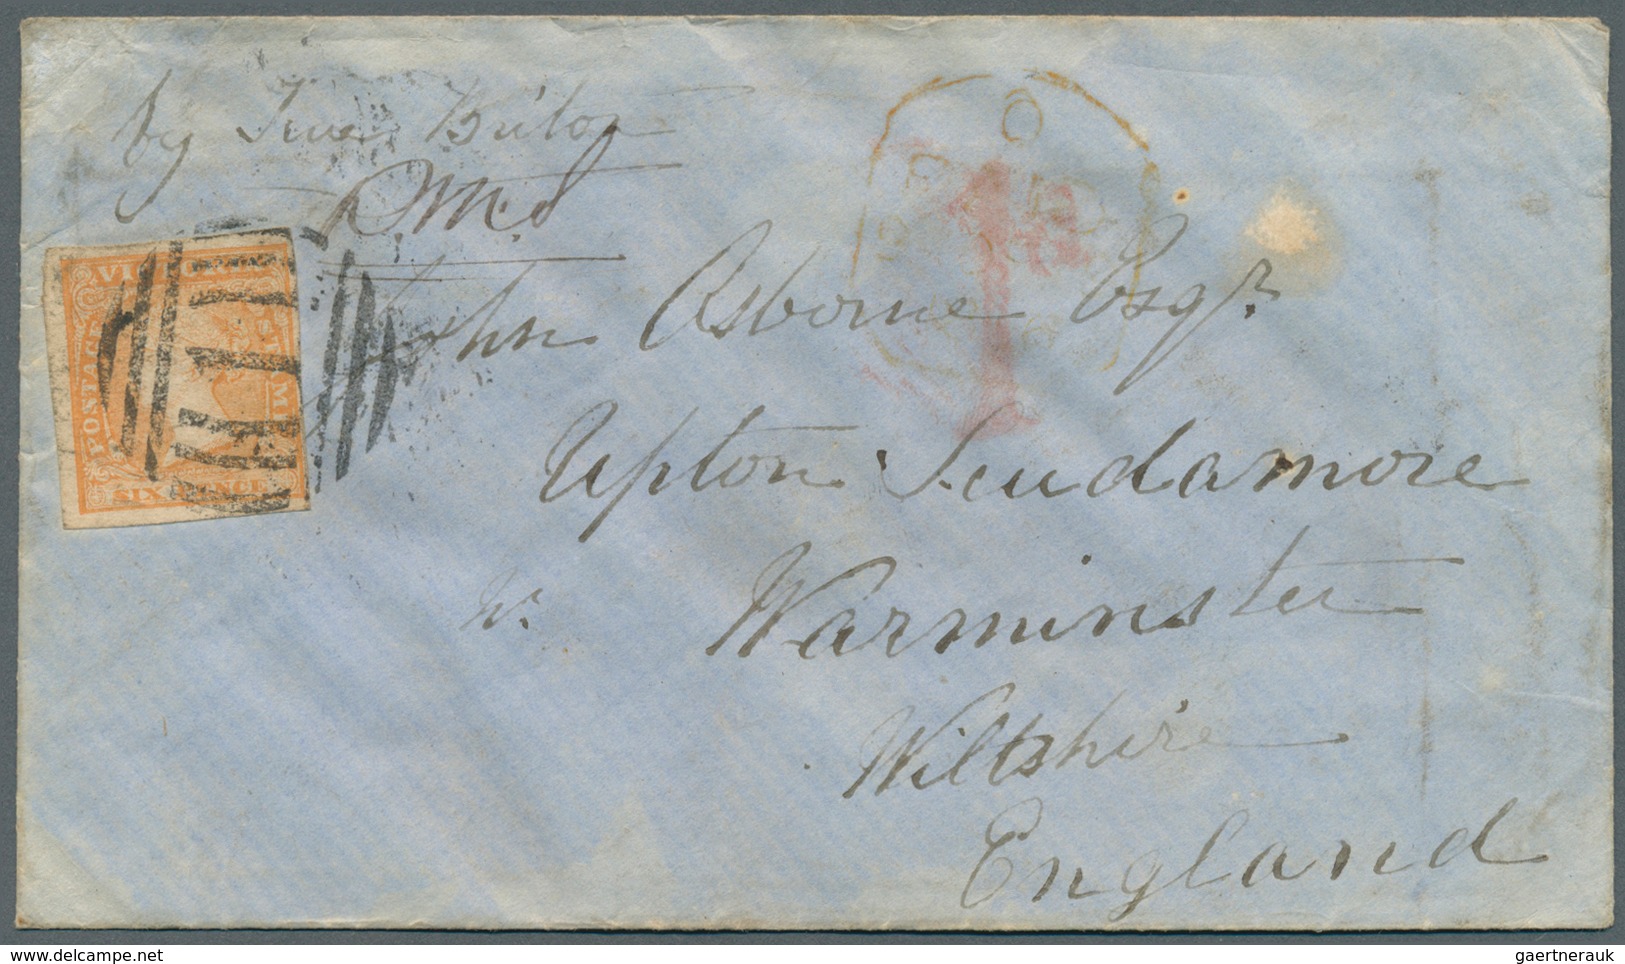 by
R.M.S
VICTORIA
POSTAGE
STAMP
SIX PENCE
John Osborne Esqr.
Upton Scudamore
Nr. Warminster
Wiltshire
England
PAID
1d
gaertnerauk